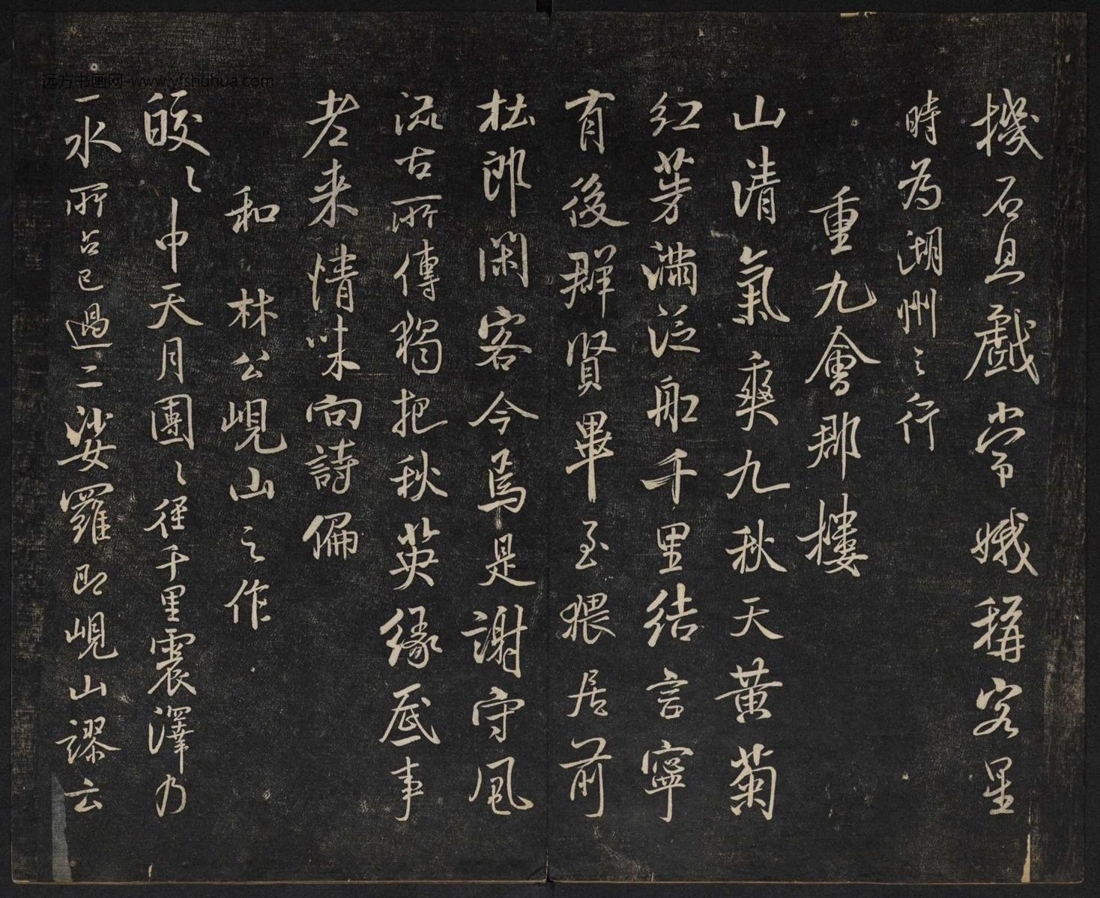 機石且戲常娥稱客星
時為湖州之行
重九會郡樓
山清氣爽九秋天黃菊
紅茱滿泛船千里結言寧
有後群賢畢至猥居前
杜郎閑客今焉是謝守風
流古所傳獨把秋英緣底事
老來情味向詩偏
和林公峴山之作
皎〻中天月團〻徑千里震澤乃
一水所占已過二娑羅即峴山謬云
远方书画网-www.yfshuhua.com